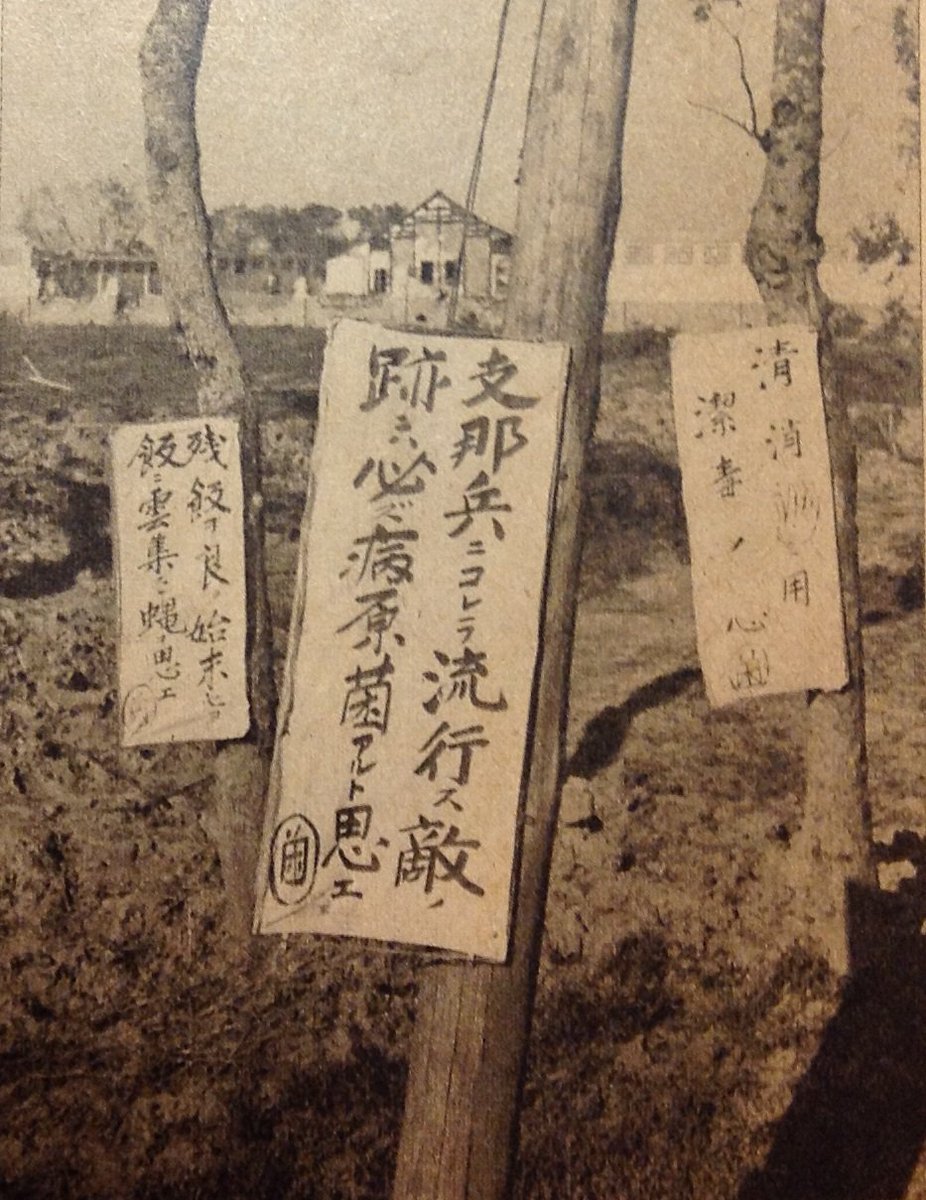 清消用
潔毒ノ心
支那兵ニコレラ流行ス敵ノ
跡ニハ必ズ病原菌アルト思エ
残飯ヲ良ク始末セヨ
飯ニ雲集シ蝿ヲ思エ